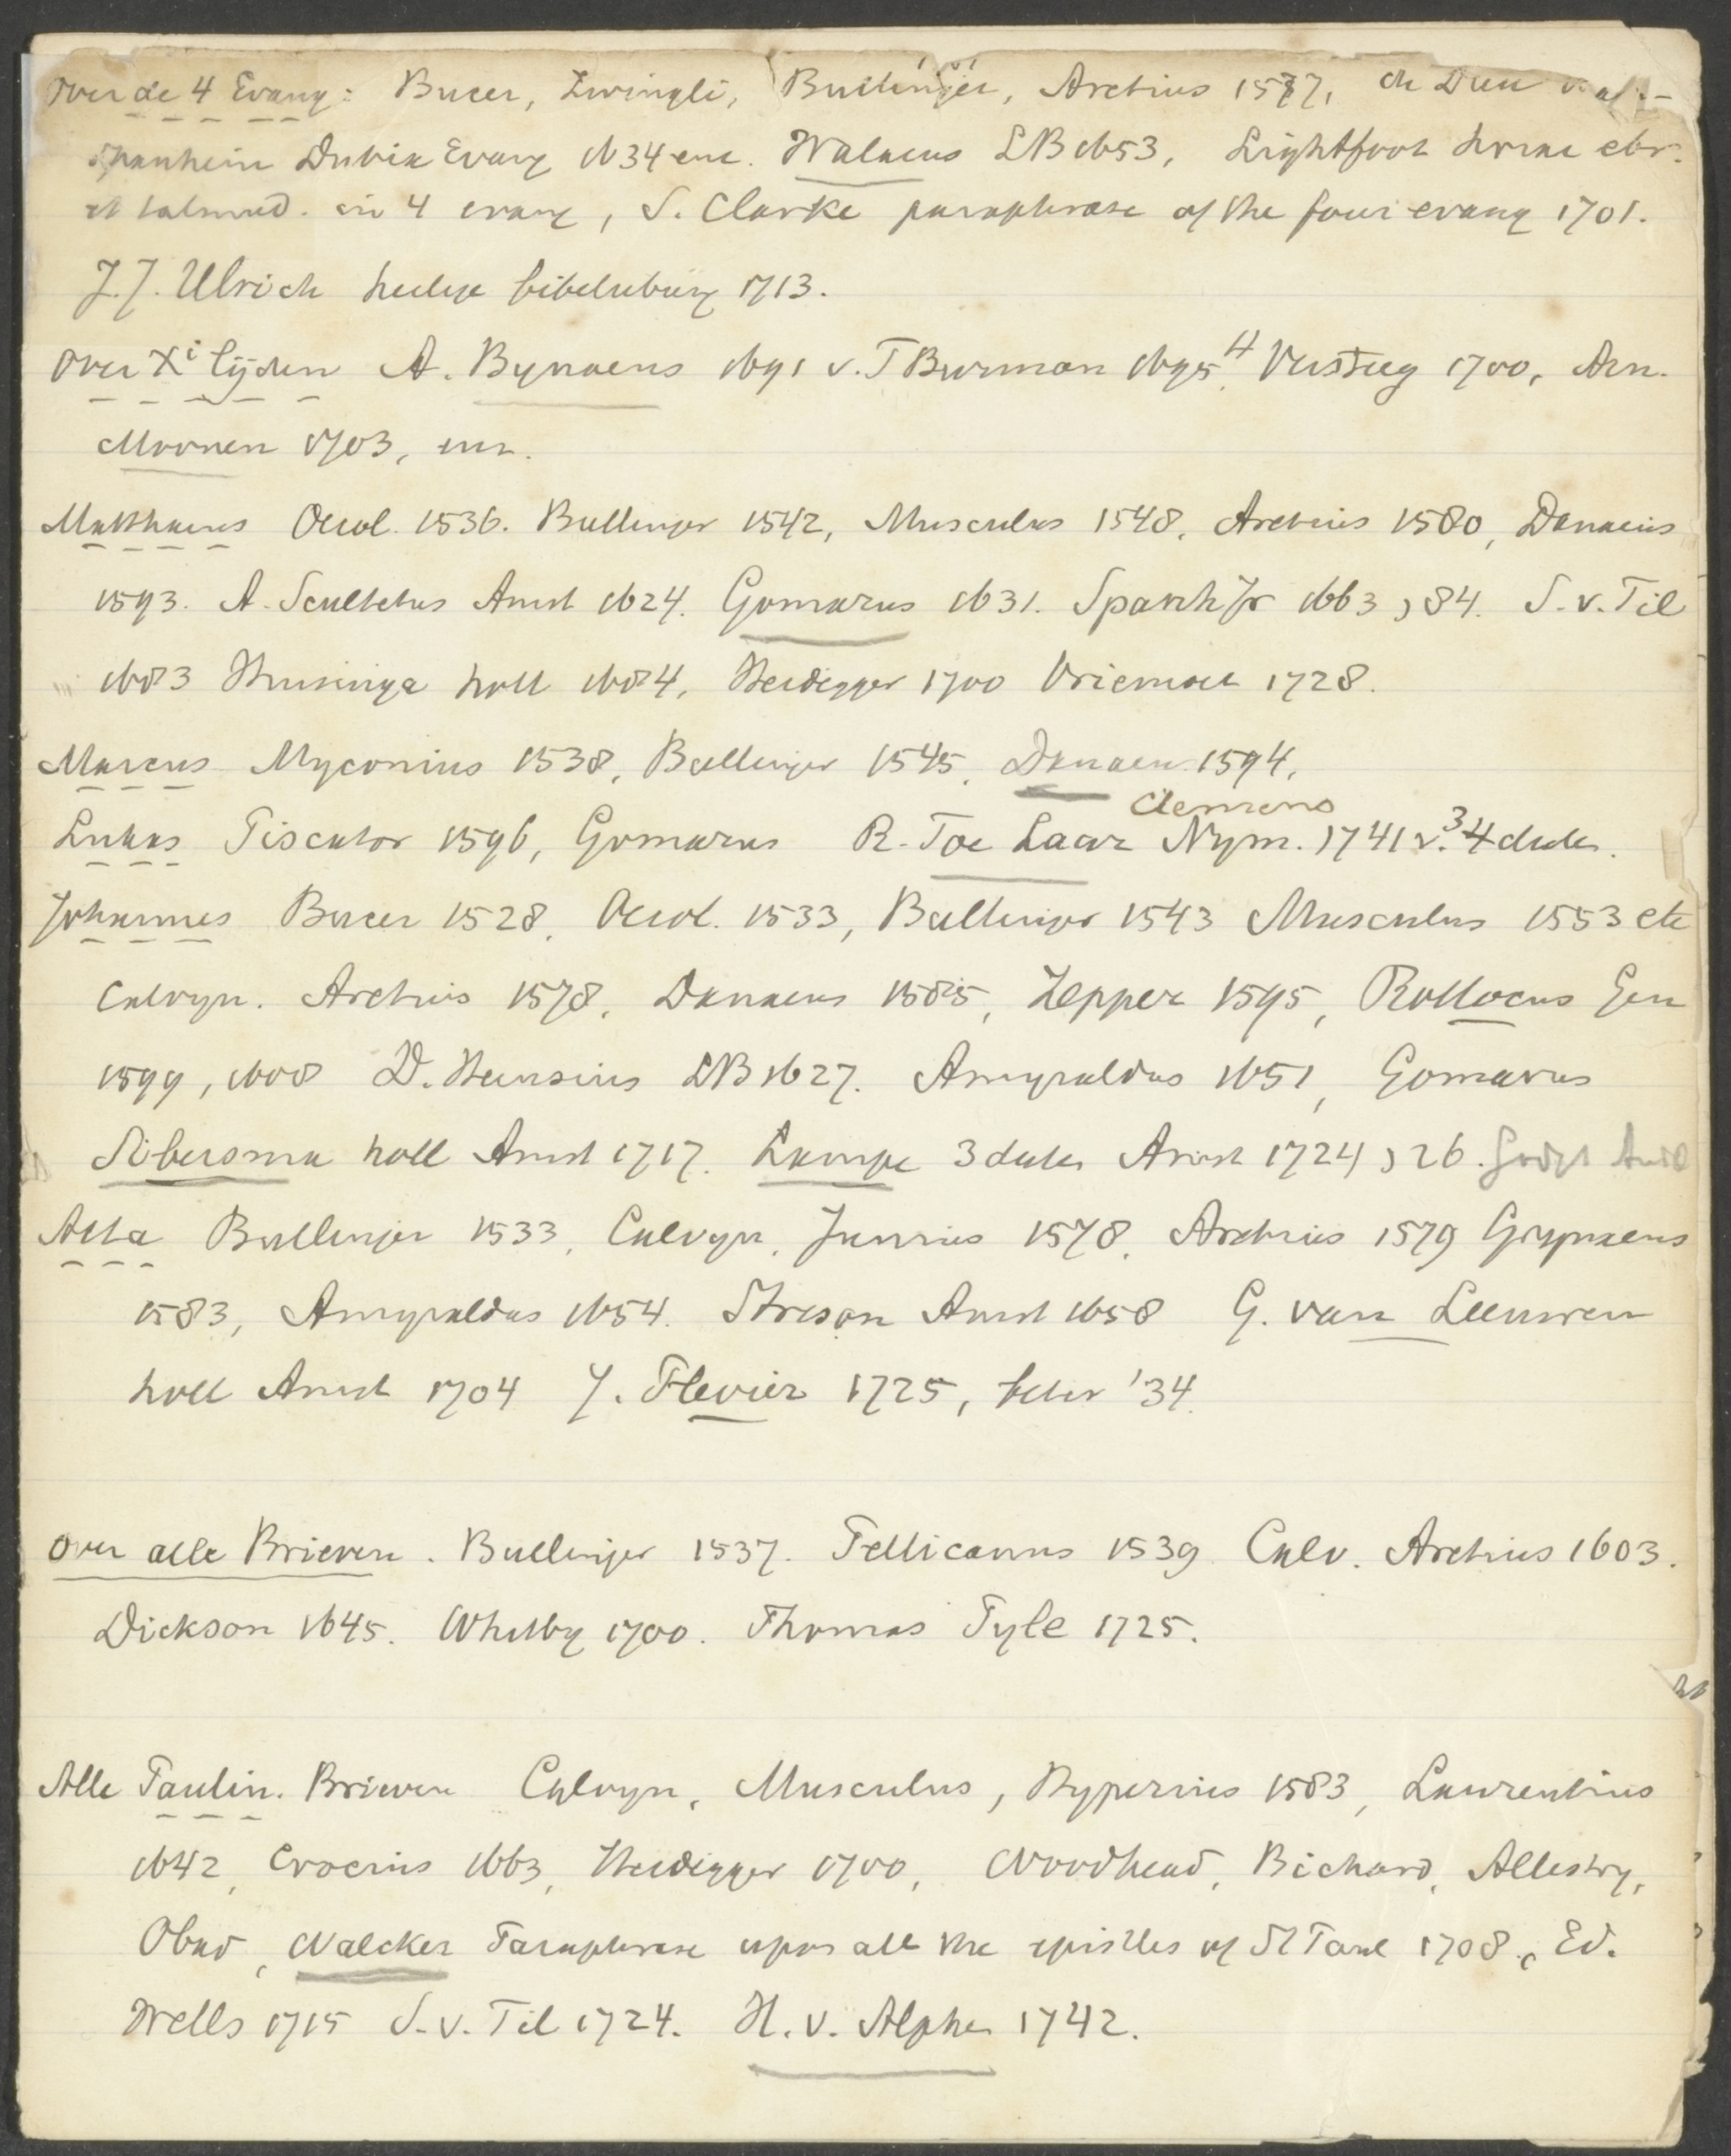 Over de 4 Evang: Bucer, Zwingli, Bullinger, Aretius 1577, de Dieu
Spanheim Dubia Evang 1634 enz. Walaeus LB 1653, Lightfoot horae ebr.
et talmud. in 4 evang, S. Clarke paraphrase of the four evang 1701.
J.J. Ulrich heilige bibelubung 1713.
Over Xi lijden A. Bynaeus 1691 v. T Burman 1695. H Versteeg 1700, Arn.
Moonen 1703, enz.
Matthaeus Oecol. 1536. Bullinger 1542, Musculus 1548, Aretius 1580, Danaeus
1593. A. Scultetus Amst 1624. Gomarus 1631. Spanh Jr 1663, 84. S. v. Til
1683 Huisinga holl 1684, Heidegger 1700 Vriemoet 1728.
Marcus Myconius 1538, Bullinger 1545, Danaeus 1594,
Clemens
Lukas Piscator 1596, Gomarus R. Toe Laer Nym. 1741 v. 3 4 deelen.
Johannes Bucer 1528, Oecol. 1533, Bullinger 1543 Musculus 1553 etc
Calvyn. Aretius 1578, Danaeus 1585, Zepper 1595, Rollocus Gen
1599, 1608 D. Heinsius LB 1627. Amyraldus 1651, Gomarus
Sibersma holl Amst 1717. Lampe 3 deelen Amst 1724, 26.
Acta Bullinger 1533, Calvyn, Junius 1578, Aretius 1579 Grynaeus
1583, Amyraldus 1654. Streson Amst 1658 G. van Leeuwen
holl Amst 1704 J. Flevier 1725, beter '34.
Over alle Brieven. Bullinger 1537. Pellicanus 1539 Calv. Aretius 1603.
Dickson 1645. Whitby 1700. Thomas Pyle 1725.
Alle Paulin. Brieven Calvyn, Musculus, Hyperius 1583, Laurentius
1642, Crocius 1663, Heidegger 1700, Woodhead, Richard, Allestry,
Obad, Walcker Paraphrase upon all the epistles of St Paul 1708, Ed.
Wells 1715 S. v. Til 1724. H. v. Alphen 1742.